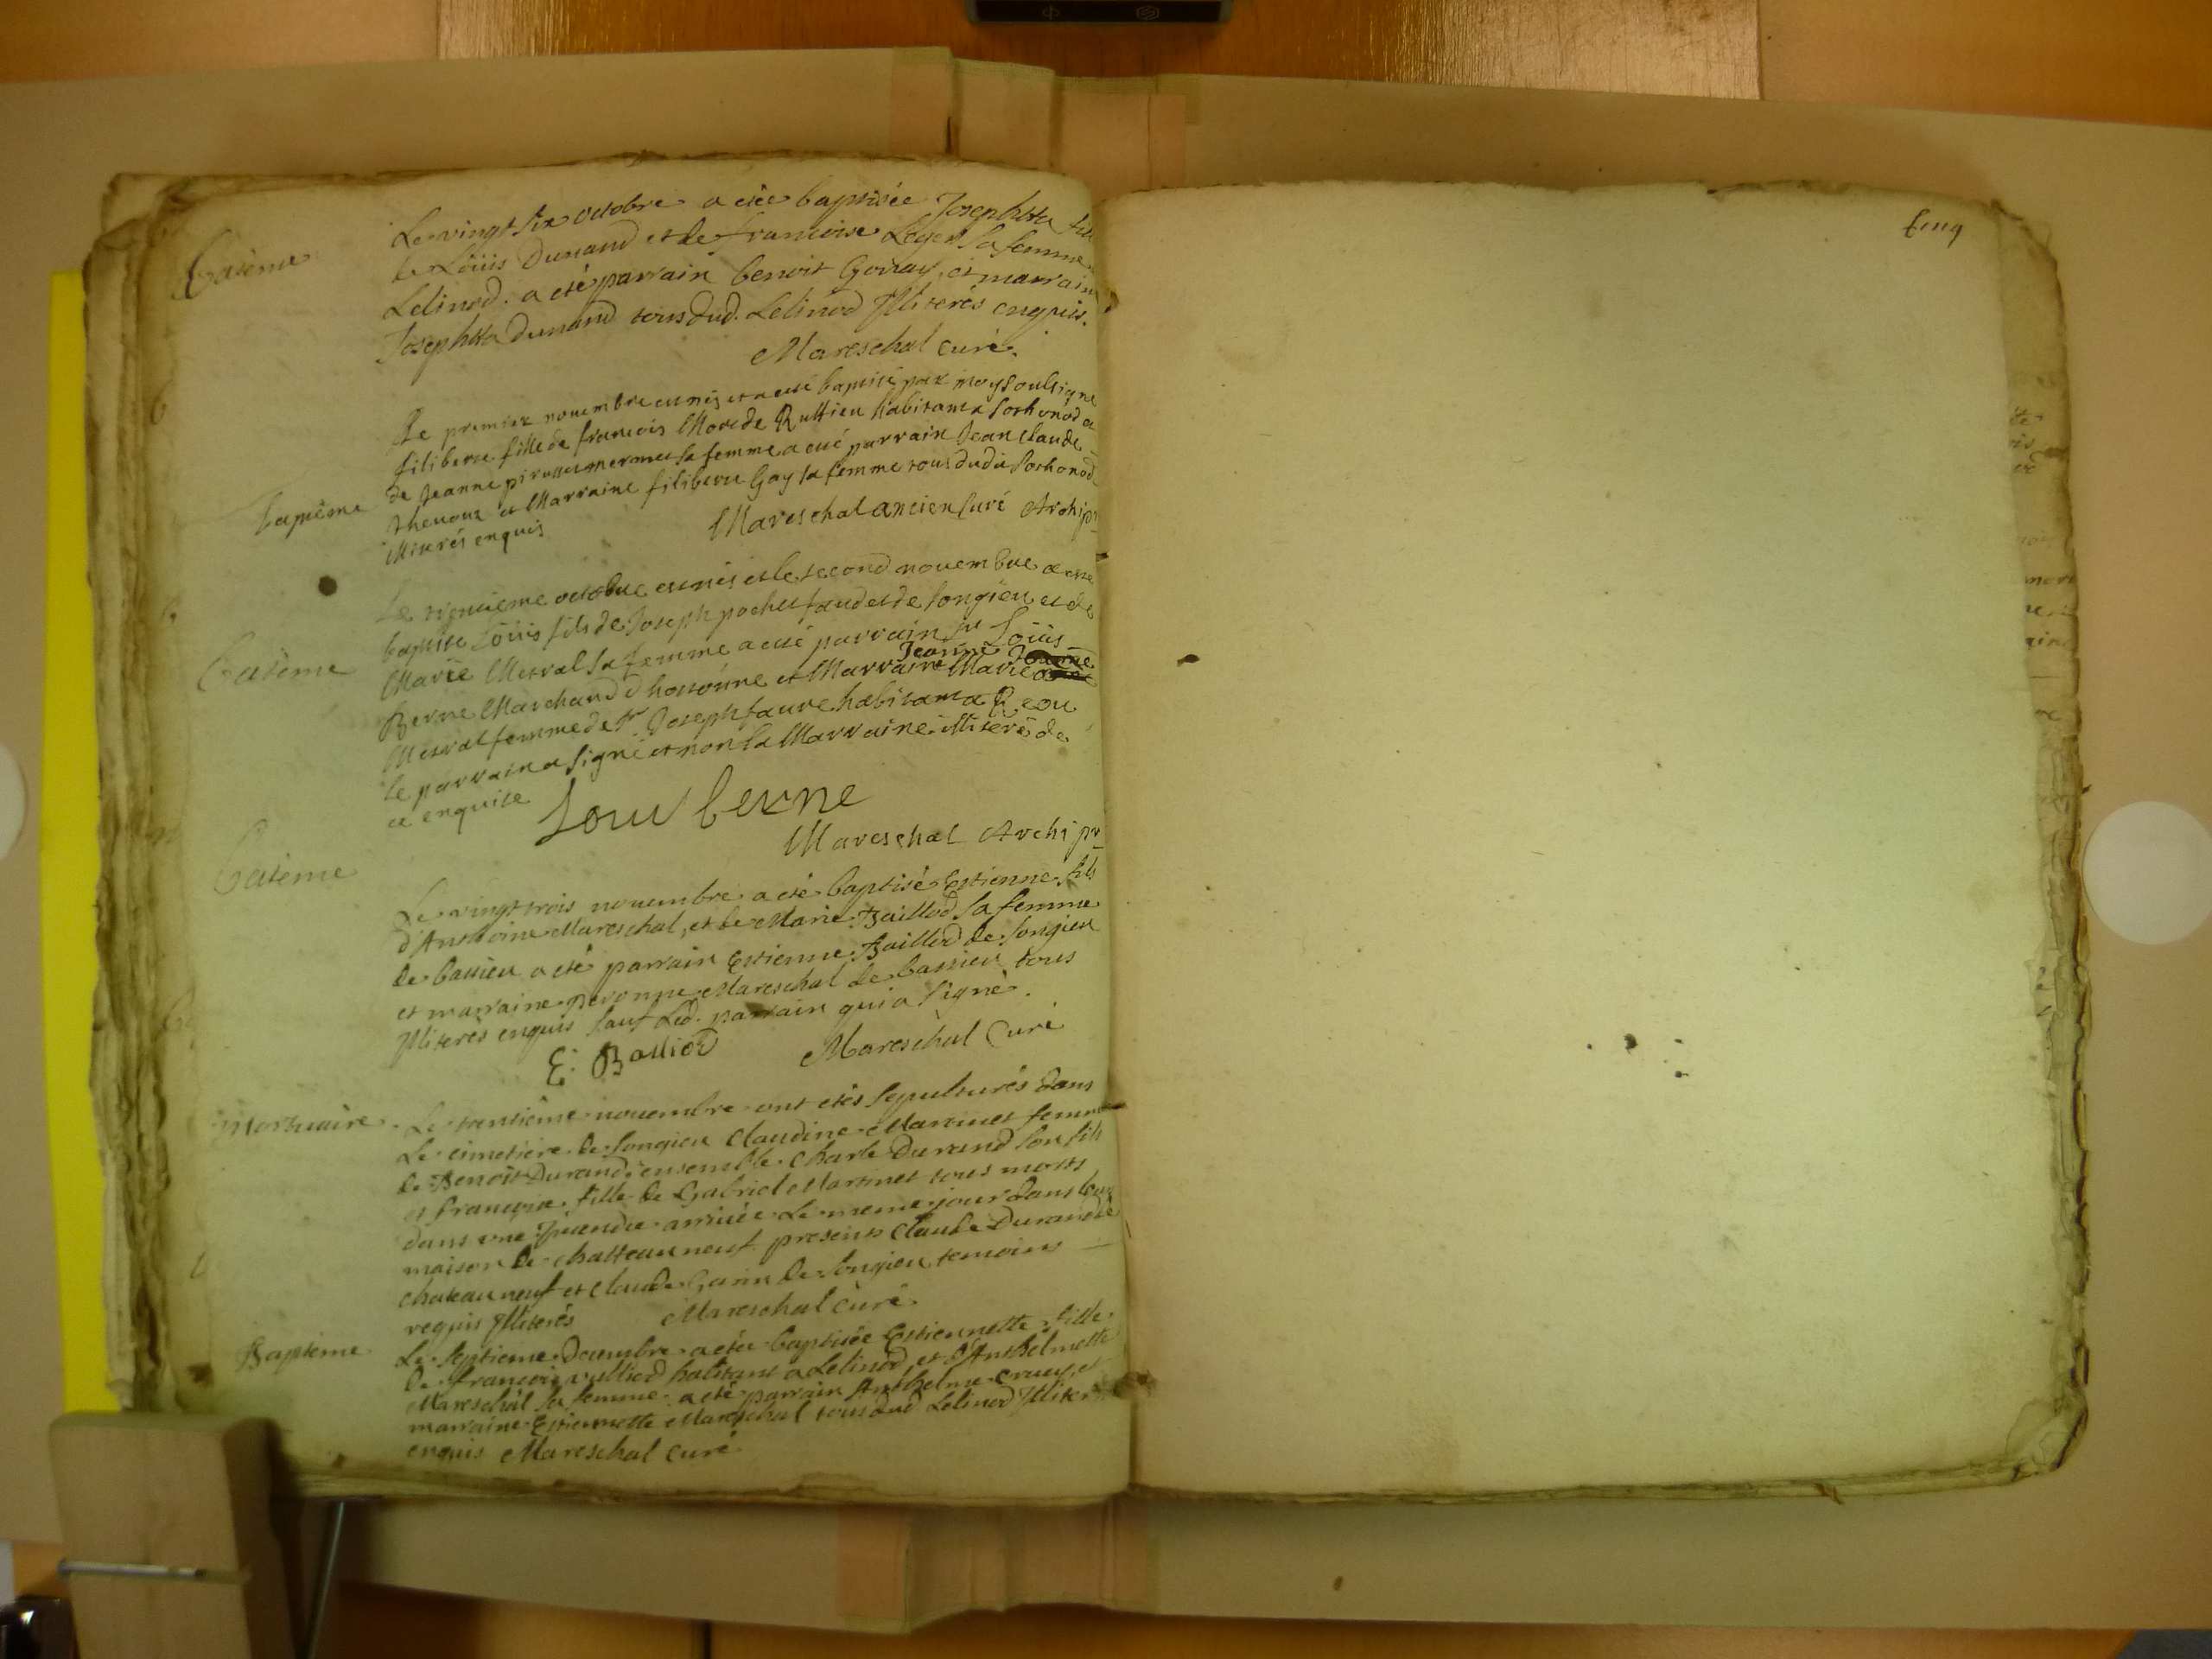 Bateme
Le vingt six octobre a etée baptisée Josephtta fille
de Loüis Dunand et de francoise Leger sa femme
Lelinod. a eté parrain benoit Goiray, et marraine
Josephtta Dunand tous dud. Lelinod Illiterés enquis.
Mareschal curé.
bapteme
Le premier nouembre est né et a eté baptisé par moy soulsigné
filiberte fille de francois More de Ruffieu habitant a Sothonod et
de Jeanne sa femme a eté parrain Jean Claude
Thevoux et Marraine filiberte Gay sa femme tous dudit Sothonod
illiterés enquis
Mareschal ancien Curé Archipr
bateme
Le trentieme octobre est né et le second nouembre a eté
baptisé Loüis fils de Joseph pochet faudet de Songieu et de
Marie Mestral sa femme a eté parrain sr Loüis
Berne Marchand d hostonne et Marraine Jeanne Marie
Mestral femme de sr Joseph faure habitant a
Le parrain a signé et non la Marraine illiterée de
ce enquise
Louis berne
Mareschal Archipr
bateme
Le vingt trois nouembre a eté baptisé Estienne fils
d'Anthoine Mareschal, et de Marie Baillod sa femme
de bassieu a eté parrain Estienne Baillod de Songieu
et marraine peronne Mareschal de bassieu tous
Illiterés enquis sauf Led. parrain qui a signé.
E. Ballied
Mareschal Curé
Mortuaire
Le trentième nouembre ont etés sepulturés dans
Le cimetiere de Songieu Claudine Martinet femme
de Benoît Durand, ensemble Charle Durand son fils
et françoise fille de Gabriel Martinet tous morts
dans une Jncendie arrivée Le meme jour dans leur
maison de chatteauneuf presents Claude Durand de
chateauneuf et Claude Garin de Songieu temoins
requis Illiterés
Mareschal curé.
Bapteme
Le septieme decembre a etée baptisée Estiennette fille
de françois vulliod habitant a Lelinod, et d'Anthelmette
Mareschal sa femme. a eté parrain Anthelme cruex, et
marraine Estiennette Mareschal tous dud Lelinod Illiter
enquis Mareschal curé